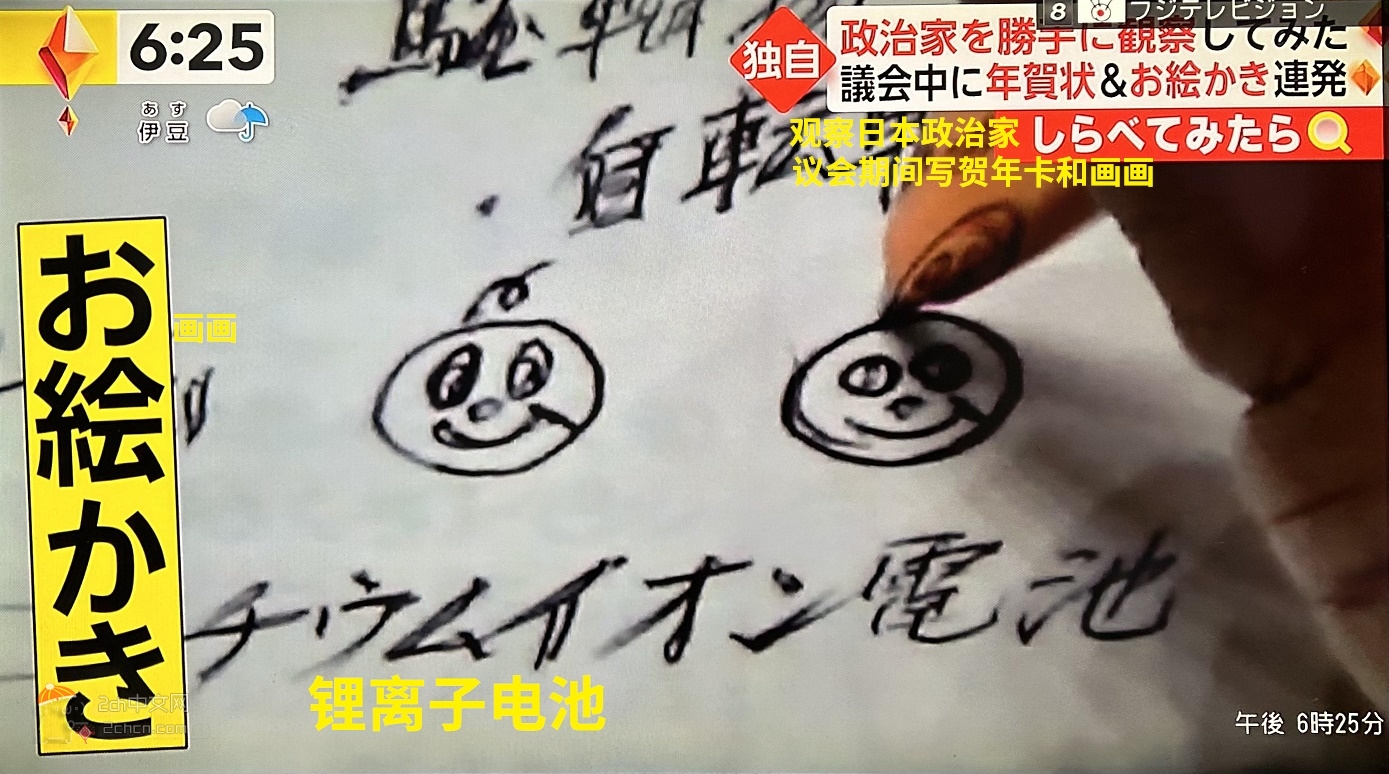 8 フジテレビジョン
6:25
独自
政治家を勝手に観察してみた
議会中に年賀状&お絵かき連発
あす
伊豆
しらべてみたら
观察日本政治家
议会期间写贺年卡和画画
駐輪場
・自転車
お絵かき
画画
チウムイオン電池
锂离子电池
2ch中文网
2chcn.com
午後 6時25分